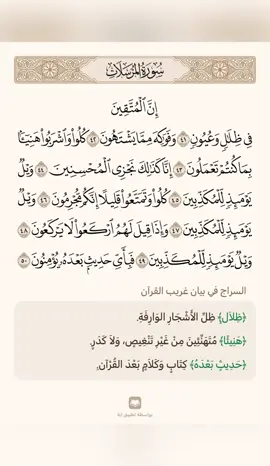 سُورَةُ المُرْسَلَات
إِنَّ ٱلْمُتَّقِينَ
فِى ظِلَٰلٍ وَعُيُونٍ ٤١ وَفَوَٰكِهَ مِمَّا يَشْتَهُونَ ٤٢ كُلُوا۟ وَٱشْرَبُوا۟ هَنِيٓـًٔۢا
بِمَا كُنتُمْ تَعْمَلُونَ ٤٣ إِنَّا كَذَٰلِكَ نَجْزِى ٱلْمُحْسِنِينَ ٤٤ وَيْلٌ
يَوْمَئِذٍ لِّلْمُكَذِّبِينَ ٤٥ كُلُوا۟ وَتَمَتَّعُوا۟ قَلِيلًا إِنَّكُم مُّجْرِمُونَ ٤٦ وَيْلٌ
يَوْمَئِذٍ لِّلْمُكَذِّبِينَ ٤٧ وَإِذَا قِيلَ لَهُمُ ٱرْكَعُوا۟ لَا يَرْكَعُونَ ٤٨
وَيْلٌ يَوْمَئِذٍ لِّلْمُكَذِّبِينَ ٤٩ فَبِأَىِّ حَدِيثٍۭ بَعْدَهُۥ يُؤْمِنُونَ ٥٠
السراج في بيان غريب القرآن
﴿ظِلَالٍ﴾ ظِلِّ الأَشْجَارِ الوَارِفَةِ.
﴿هَنِيئًا﴾ مُتَهَنِّئِينَ مِنْ غَيْرِ تَنْغِيصٍ، وَلَا كَدَرٍ.
﴿حَدِيثٍ بَعْدَهُ﴾ كِتَابٍ وَكَلَامٍ بَعْدَ القُرْآنِ.
بواسطة تطبيق آية